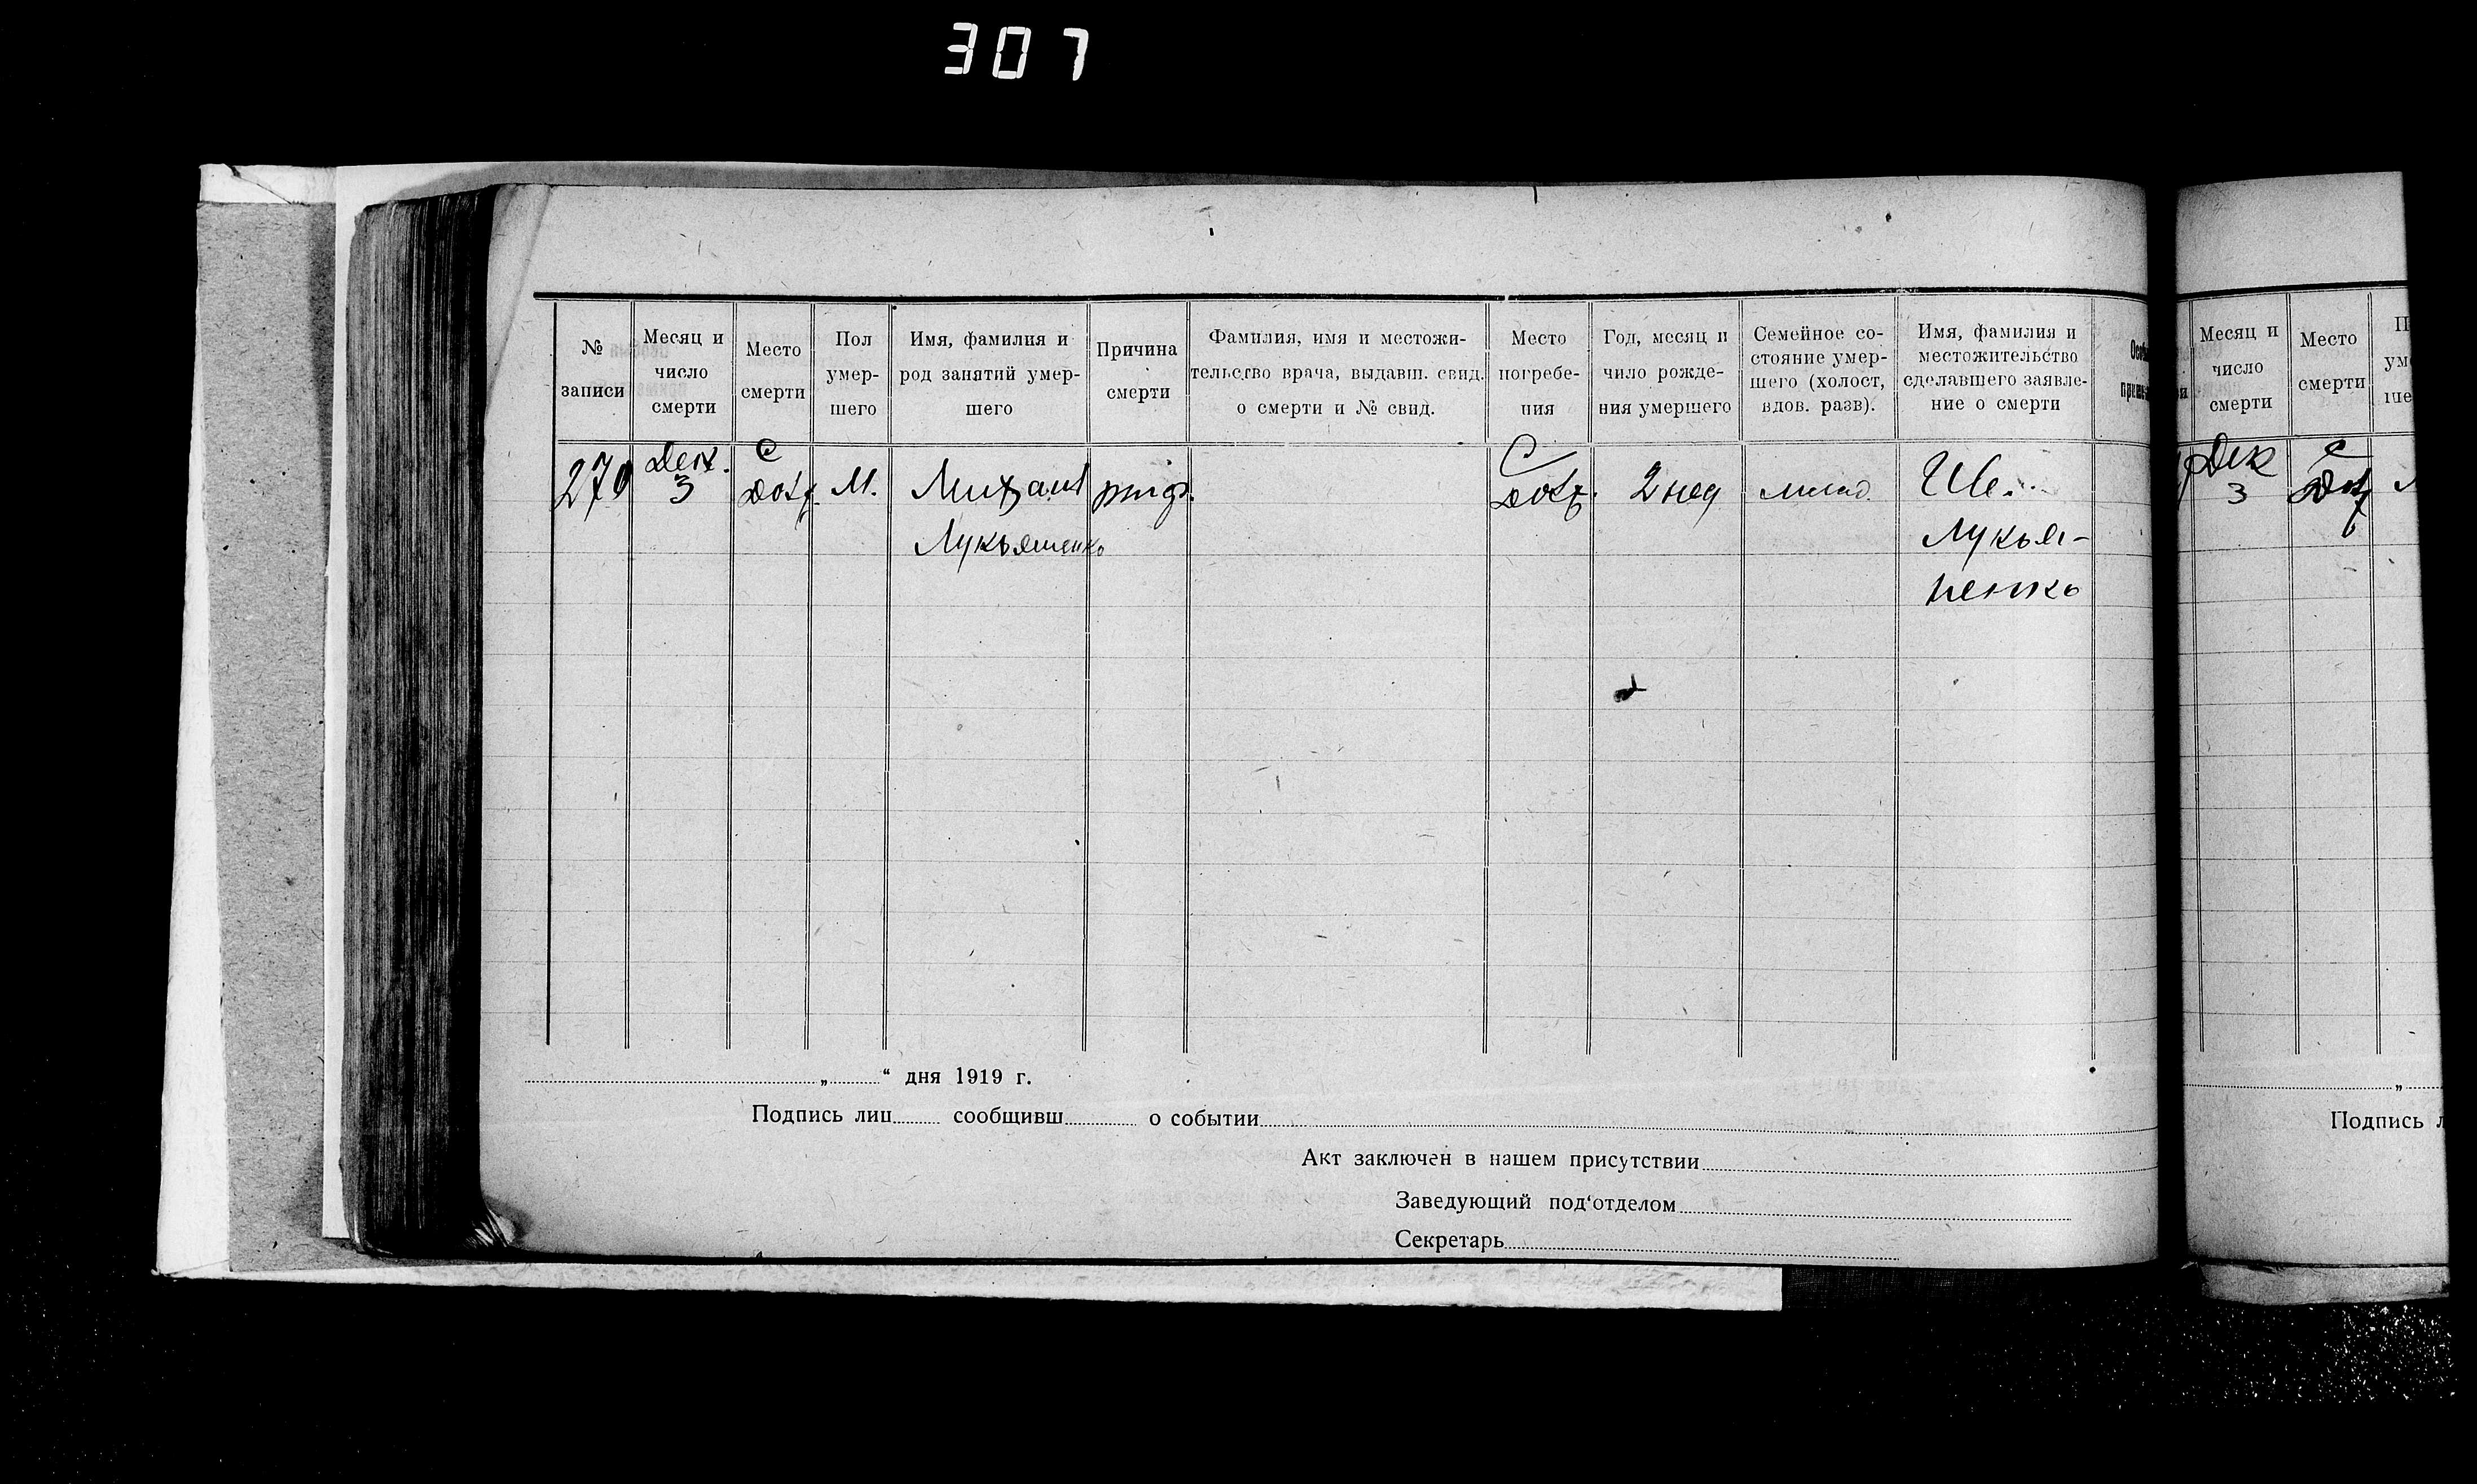 307
№ записи
Месяц и число смерти
Место смерти
Пол умер-
шего
Имя, фамилия и
род занятий умер-
шего
Причина смерти
Фамилия, имя и местожи-
тельство врача, выдавш. свид.
о смерти и № свид.
Место
погребе-
ния
Год, месяц и
число рожде-
ния умершего
Семейное со-
стояние умер-
шего (холост,
вдов. разв).
Имя, фамилия и
местожительство
сделавшего заявле-
ние о смерти
270
Дек.
3
С
М.
Михаил
Лукьяненко
тиф.
С
2 нед
млад.
Ив.
Лукья-
ненко
„ “ дня 1919 г.
Подпись лиц сообщивш о событии
Акт заключен в нашем присутствии
Заведующий под‘отделом
Секретарь
Месяц и
число
смерти
Место
смерти
Дек
3
с
„
Подпись